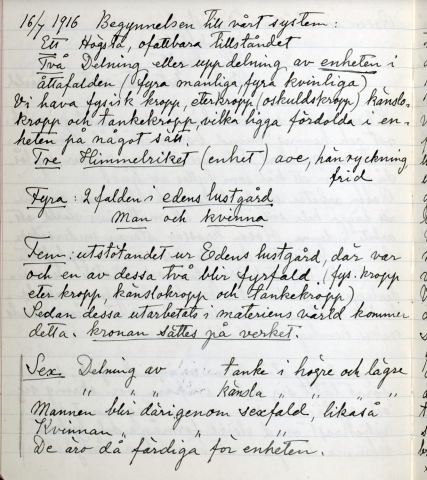 16/7 1916 Begynnelsen till vårt system:
Ett Högsta, ofattbara tillståndet
Två Delning eller uppdelning av enheten i
åttafalden (fyra manliga, fyra kvinliga)
Vi hava fysisk kropp, eterkropp (oskuldskropp) känslo-
kropp och tankekropp, vilka ligga fördolda i en-
heten på något sätt.
Tre Himmelriket (enhet) aoe, hänryckning
frid
Fyra: 2 falden i edens lustgård
Man och kvinna
Fem: utstötandet ur Edens lustgård, där var
och en av dessa två blir fyrfald. (fys. kropp
eter kropp, känslokropp och tankekropp)
Sedan dessa utarbetats i materiens värld kommer
detta. kronan sättes på verket.
Sex Delning av tanke i högre och lägre
" " känsla " " " "
Mannen blir därigenom sexfald, likaså
Kvinnan " " "
De äro då färdiga för enheten.